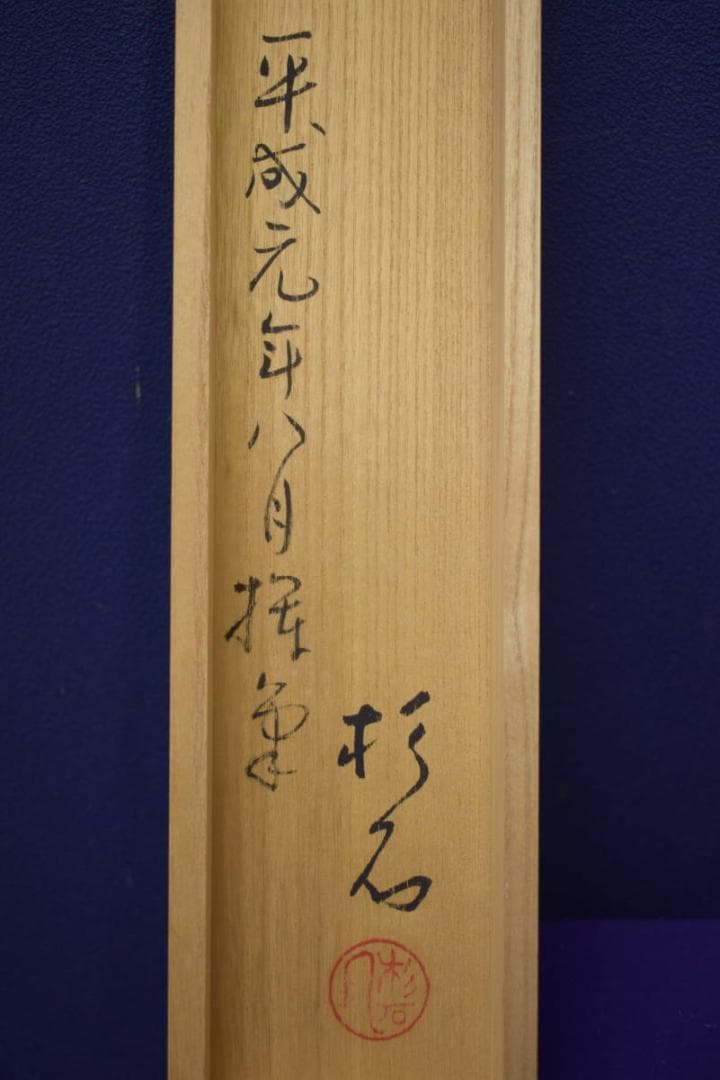 平成元年八月揮筆
杉石
杉石